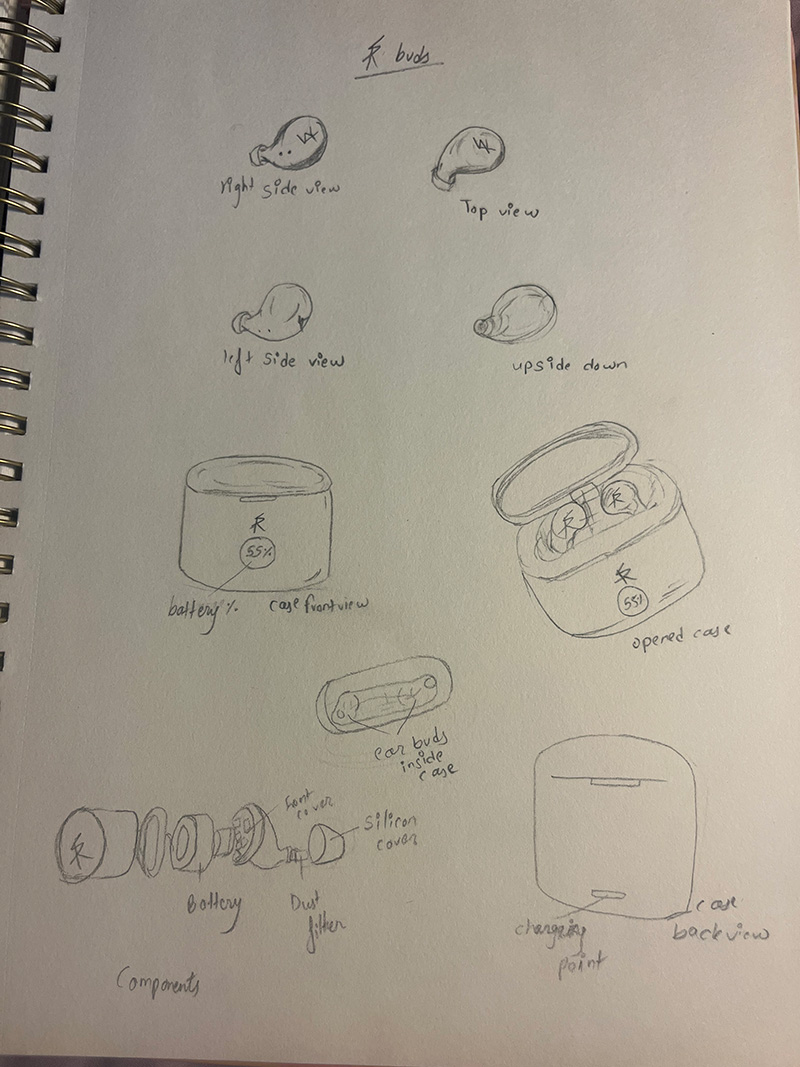 buds
right side view
Top view
left side view
upside down
55%
battery %
case front view
55%
opened case
ear buds
inside
case
Front
cover
Silicon
cover
Battery
Dust
filter
charging
point
case
back view
Components